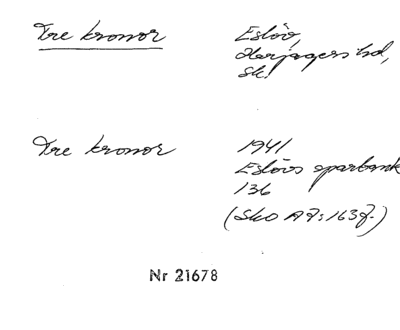 Tre kronor
Eslöv,
Harjagers hd,
Sk.
Tre kronor
1941
Eslövs sparbank
136
(Sko A 7:163 f.)
Nr 21678